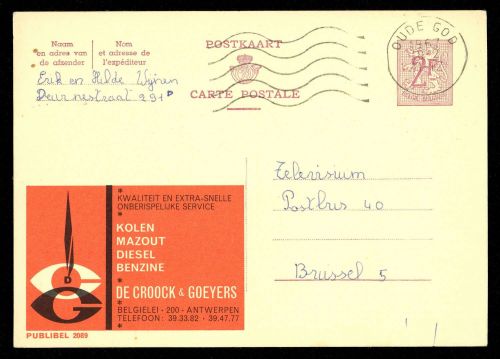 Naam
en adres van
de afzender
Nom
et adresse de
l'expéditeur
Erik en Hilde Wijnen
Deurnestraat 291D
POSTKAART
CARTE POSTALE
OUDE GOD
2F
BELGIE-BELGIQUE
Televisium
Postbus 40
Brussel 5
* KWALITEIT EN EXTRA-SNELLE
ONBERISPELIJKE SERVICE
*
KOLEN
MAZOUT
DIESEL
BENZINE
*
DE CROOCK & GOEYERS
* BELGIËLEI - 200 - ANTWERPEN
TELEFOON : 39.33.82 - 39.47.77
D
C G
PUBLIBEL 2089